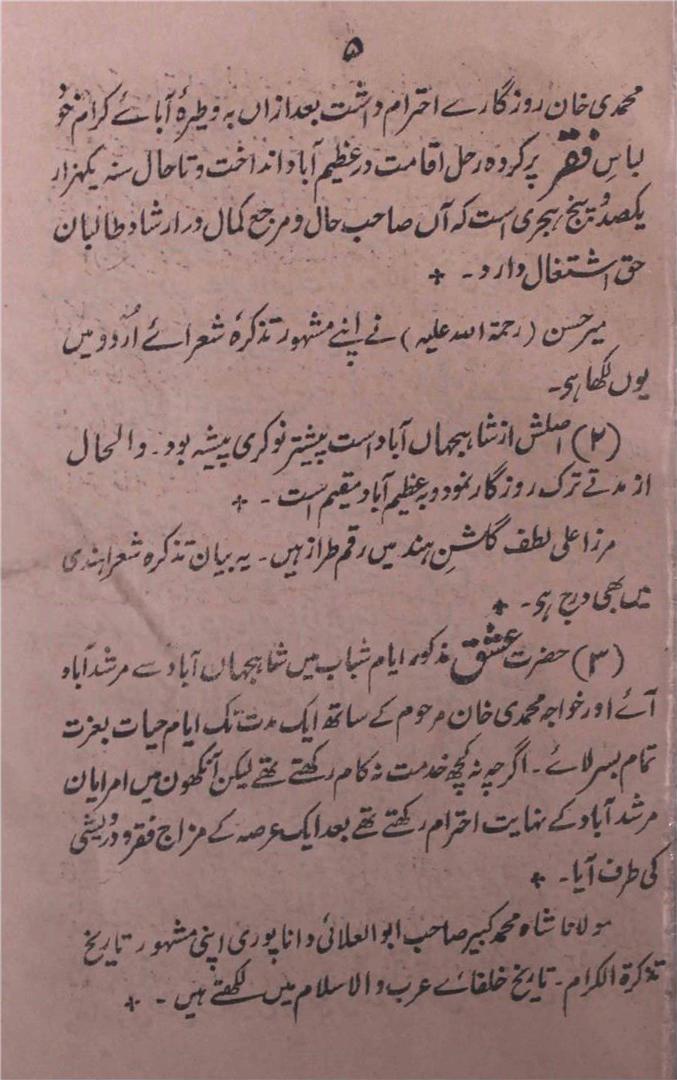 ۵
محمدی خان روزگارے احترام داشت بعد ازاں بہ وطیرۂ آبائے کرام خود
لباسِ فقر پر کردہ رحل اقامت در عظیم آباد انداخت و تا حال سنہ یکہزار
یکصد و پنج ہجری است کہ آں صاحب حال و مرجع کمال در ارشاد طالبان
حق اشتغال دارد۔ ٭
میر حسن (رحمۃ اللہ علیہ) نے اپنے مشہور تذکرۂ شعرائے اُردو میں
یوں لکھا ہی۔
(۲) اصلش از شاہجہاں آباد است پیشتر نوکری پیشہ بود۔ والحال
از مدتے ترک روزگار نمودہ بہ عظیم آباد مقیم است۔ ٭
مرزا علی لطف گلشنِ ہند میں رقم طراز ہیں۔ یہ بیان تذکرہ شعرا ہندی
میں بھی درج ہی۔ ٭
(۳) حضرت عشق مذکور ایام شباب میں شاہجہاں آباد سے مرشد آباد
آئے اور خواجہ محمدی خان مرحوم کے ساتھ ایک مدت تک ایام حیات بعزت
تمام بسر لائے۔ اگرچہ نہ کچھ خدمت نہ کام رکھتے تھے لیکن آنکھون میں امرایان
مرشد آباد کے نہایت احترام رکھتے تھے بعد ایک عرصہ کے مزاج فقر و درویشی
کی طرف آیا۔ ٭
مولانا شاہ محمد کبیر صاحب ابوالعلائی دانا پوری اپنی مشہور تاریخ
تذکرۃ الکرام۔ تاریخ خلفائے عرب والاسلام میں لکھتے ہیں۔ ٭